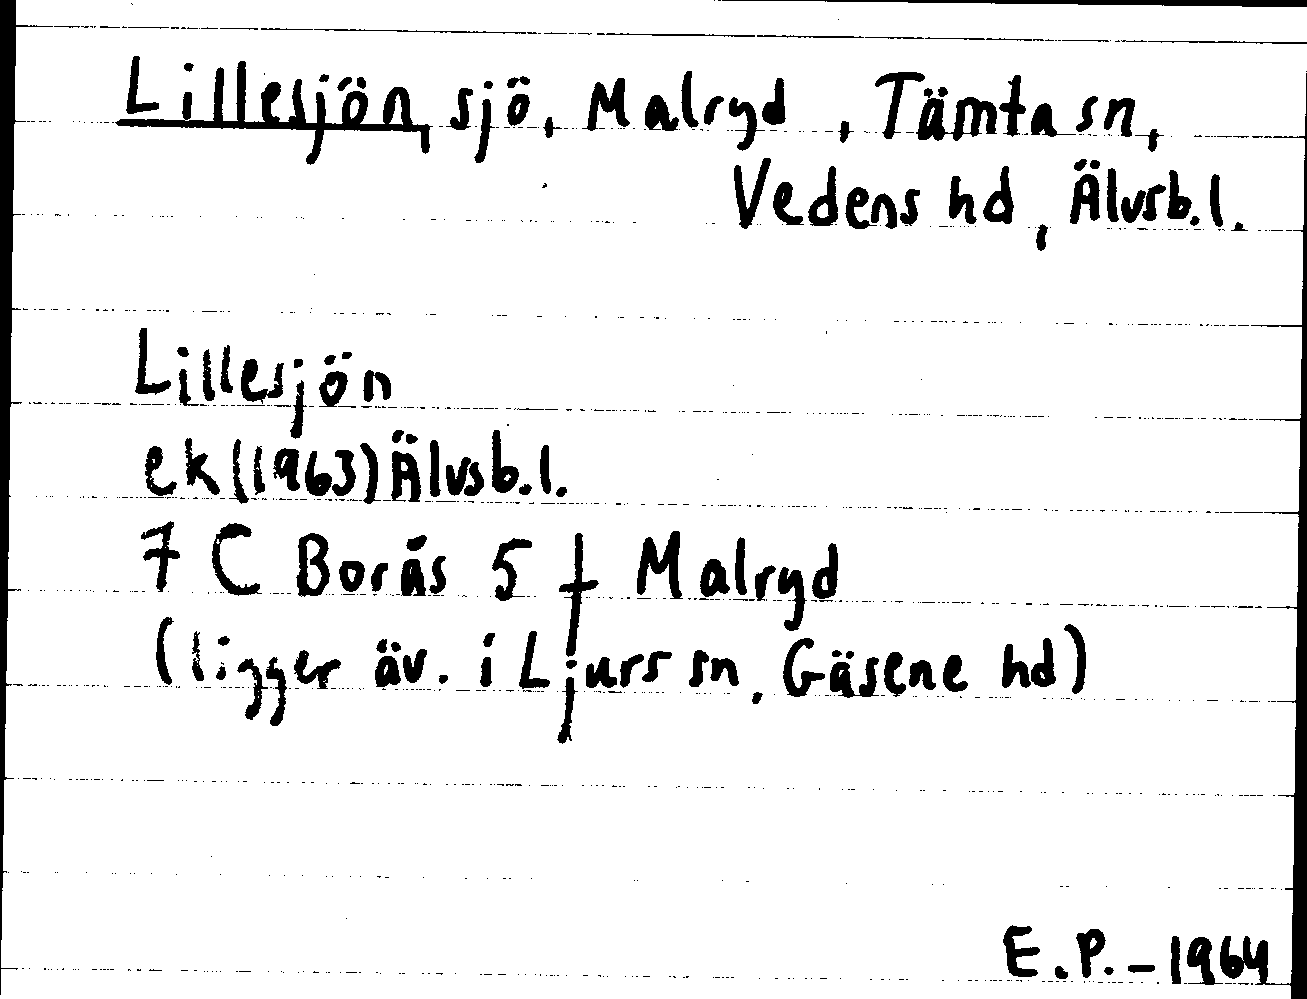 Lillesjön, sjö, Malryd, Tämta sn,
Vedens hd, Älvsb.l.
Lillesjön
ek (1963) Älvsb.l.
7 C Borås 5 f Malryd
(ligger äv. i Ljurs sn, Gäsene hd)
E.P.-1964